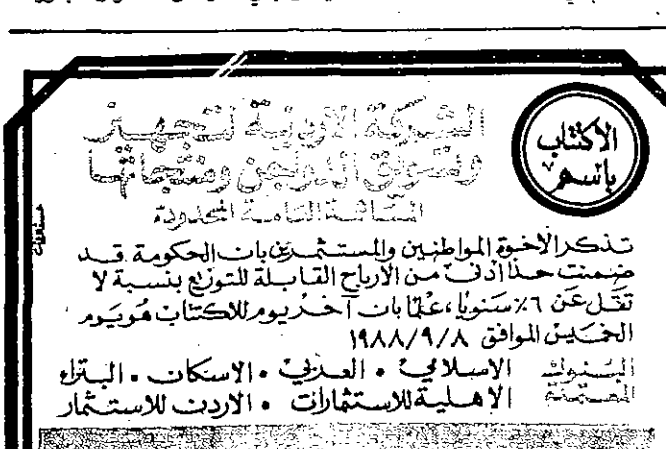 الاكتتاب
باسم
الشركة الاردنية لتجهيز
وتسويق الدواجن ومنتجاتها
المساهمة العامة المحدودة
تذكر الاخوة المواطنين والمستثمرين بان الحكومة قد
ضمنت حدا ادنى من الارباح القابلة للتوزيع بنسبة لا
تقل عن ٦٪ سنويا، علما بان آخر يوم للاكتتاب هو يوم
الخميس الموافق ١٩٨٨/٩/٨
البنوك الاسلامي • العربي • الاسكان • البتراء
المعتمدة الاهلية للاستثمارات • الاردن للاستثمار